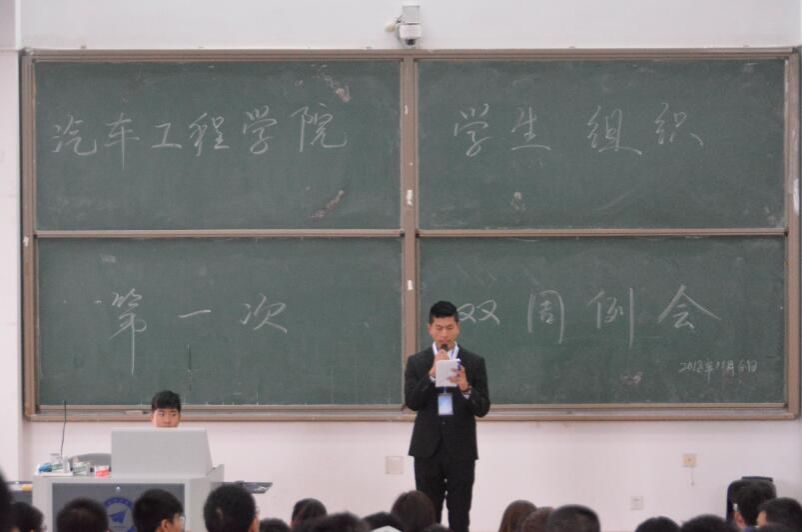 汽车工程学院 学生组织
第一次 双周例会
2018年11月6日